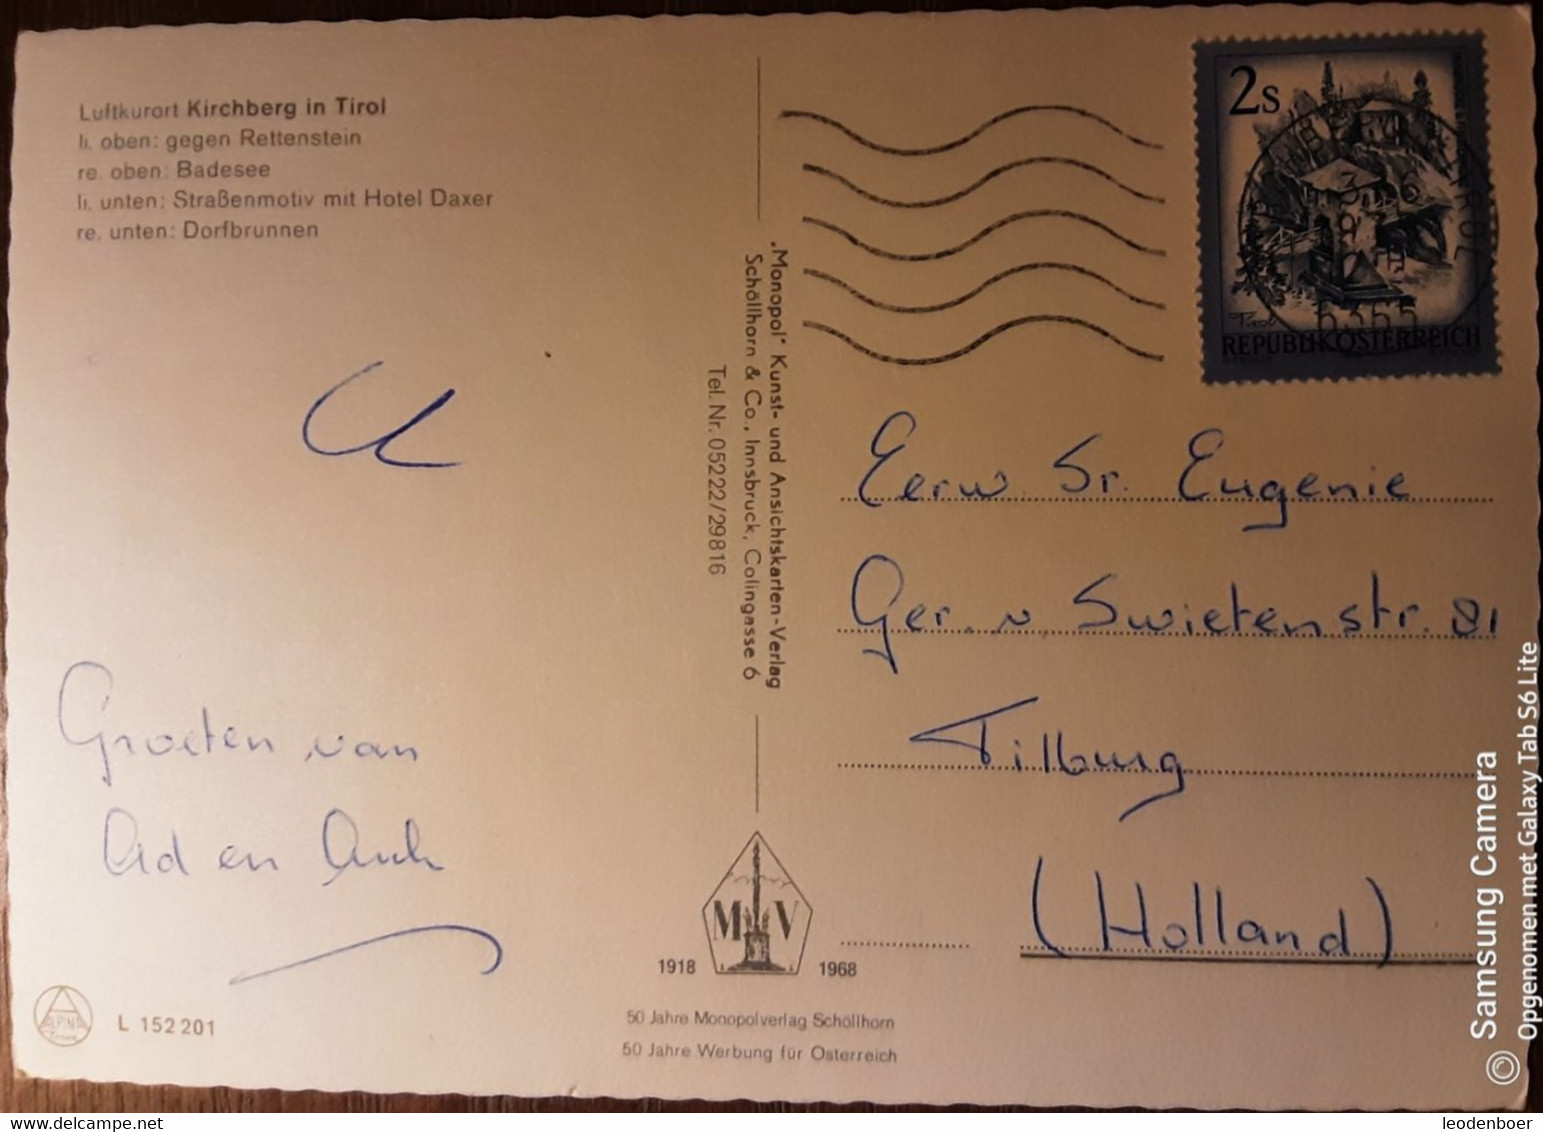 Luftkurort Kirchberg in Tirol
li. oben: gegen Rettenstein
re. oben: Badesee
li. unten: Straßenmotiv mit Hotel Daxer
re. unten: Dorfbrunnen
Groeten van
Ad en
L 152 201
„Monopol“ Kunst- und Ansichtskarten-Verlag
Schöllhorn & Co., Innsbruck, Colingasse 6
Tel. Nr. 05222/29816
M V
1918 1968
50 Jahre Monopolverlag Schöllhorn
50 Jahre Werbung für Österreich
2s
Tirol
REPUBLIK ÖSTERREICH
6365
Eerw. Sr. Eugenie
Ger. v Swietenstr. 81
Tilburg
(Holland)
© Samsung Camera
Opgenomen met Galaxy Tab S6 Lite
delcampe.net
leodenboer